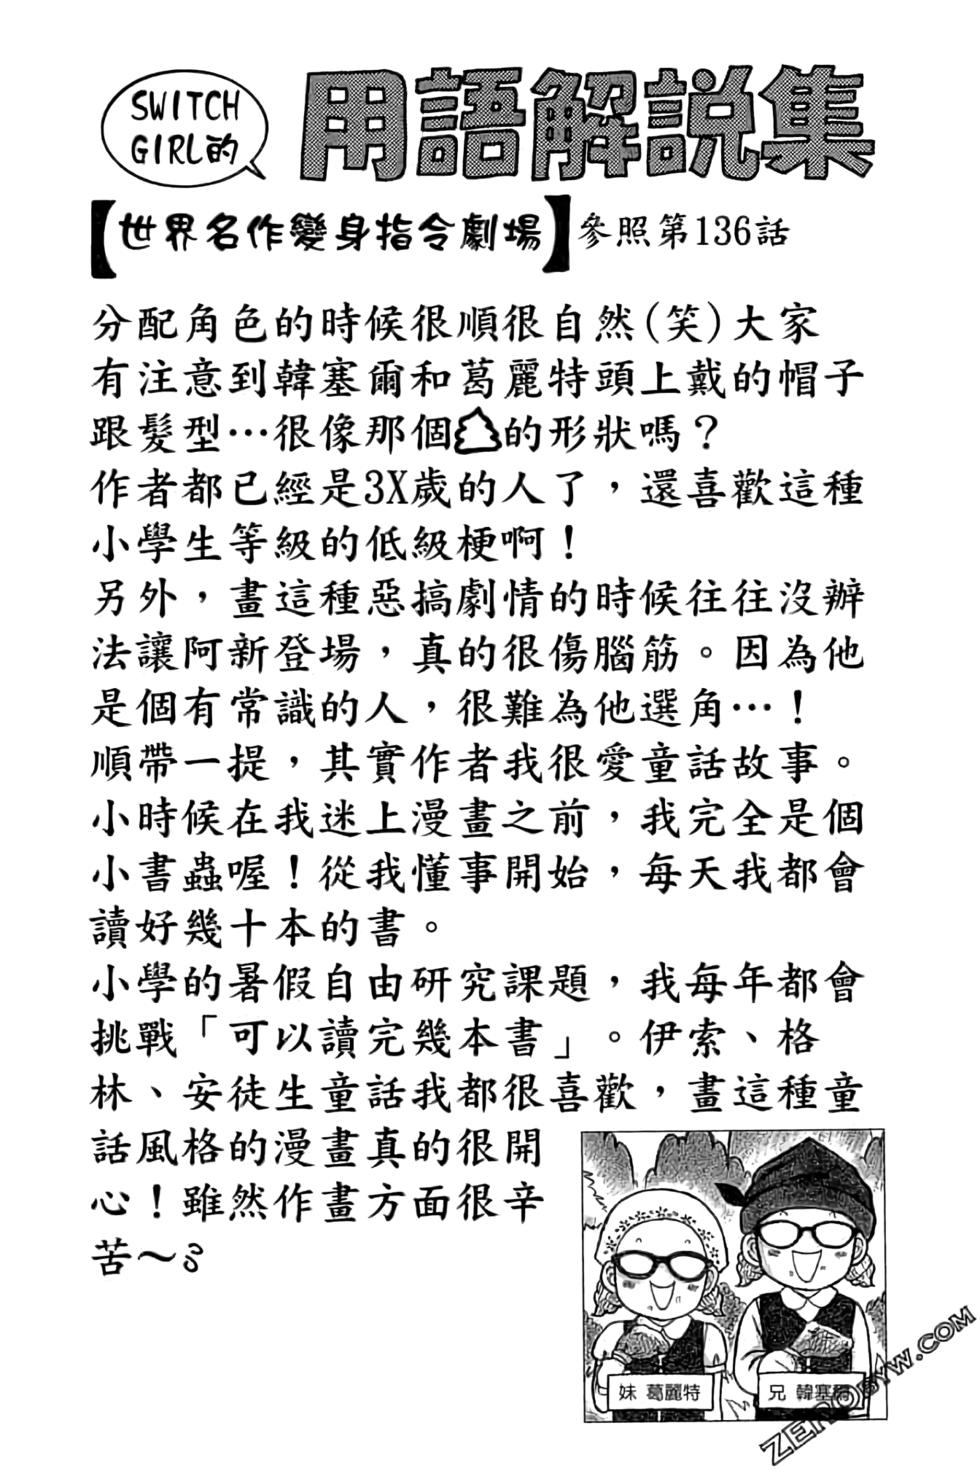 SWITCH
GIRL的
用語解説集
【世界名作變身指令劇場】參照第136話
分配角色的時候很順很自然(笑)大家
有注意到韓塞爾和葛麗特頭上戴的帽子
跟髮型…很像那個的形狀嗎？
作者都已經是3X歲的人了，還喜歡這種
小學生等級的低級梗啊！
另外，畫這種惡搞劇情的時候往往沒辦
法讓阿新登場，真的很傷腦筋。因為他
是個有常識的人，很難為他選角…！
順帶一提，其實作者我很愛童話故事。
小時候在我迷上漫畫之前，我完全是個
小書蟲喔！從我懂事開始，每天我都會
讀好幾十本的書。
小學的暑假自由研究課題，我每年都會
挑戰「可以讀完幾本書」。伊索、格
林、安徒生童話我都很喜歡，畫這種童
話風格的漫畫真的很開
心！雖然作畫方面很辛
苦～
妹 葛麗特
兄 韓塞爾
ZEROBYW.COM